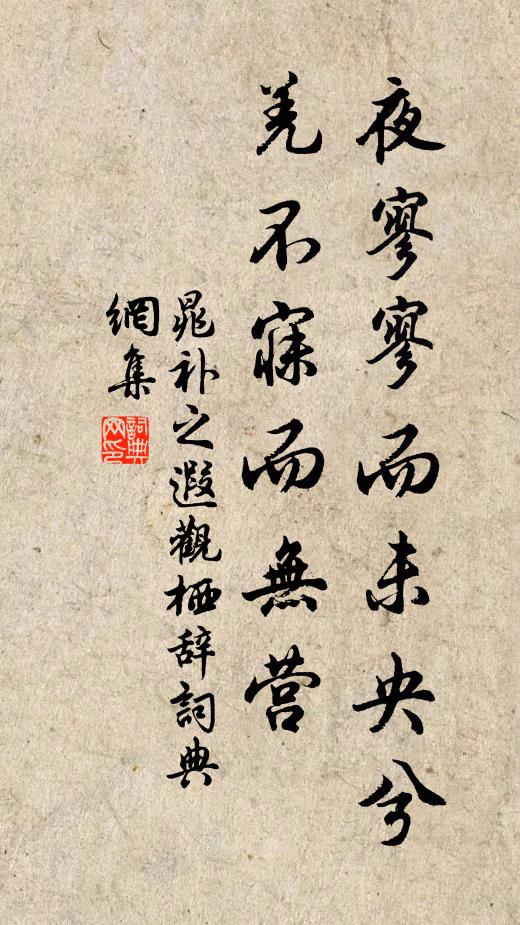 夜寥寥而未央兮
羌不寐而無营
晁补之遐觀栖辞詞典
網集
詞典
网印